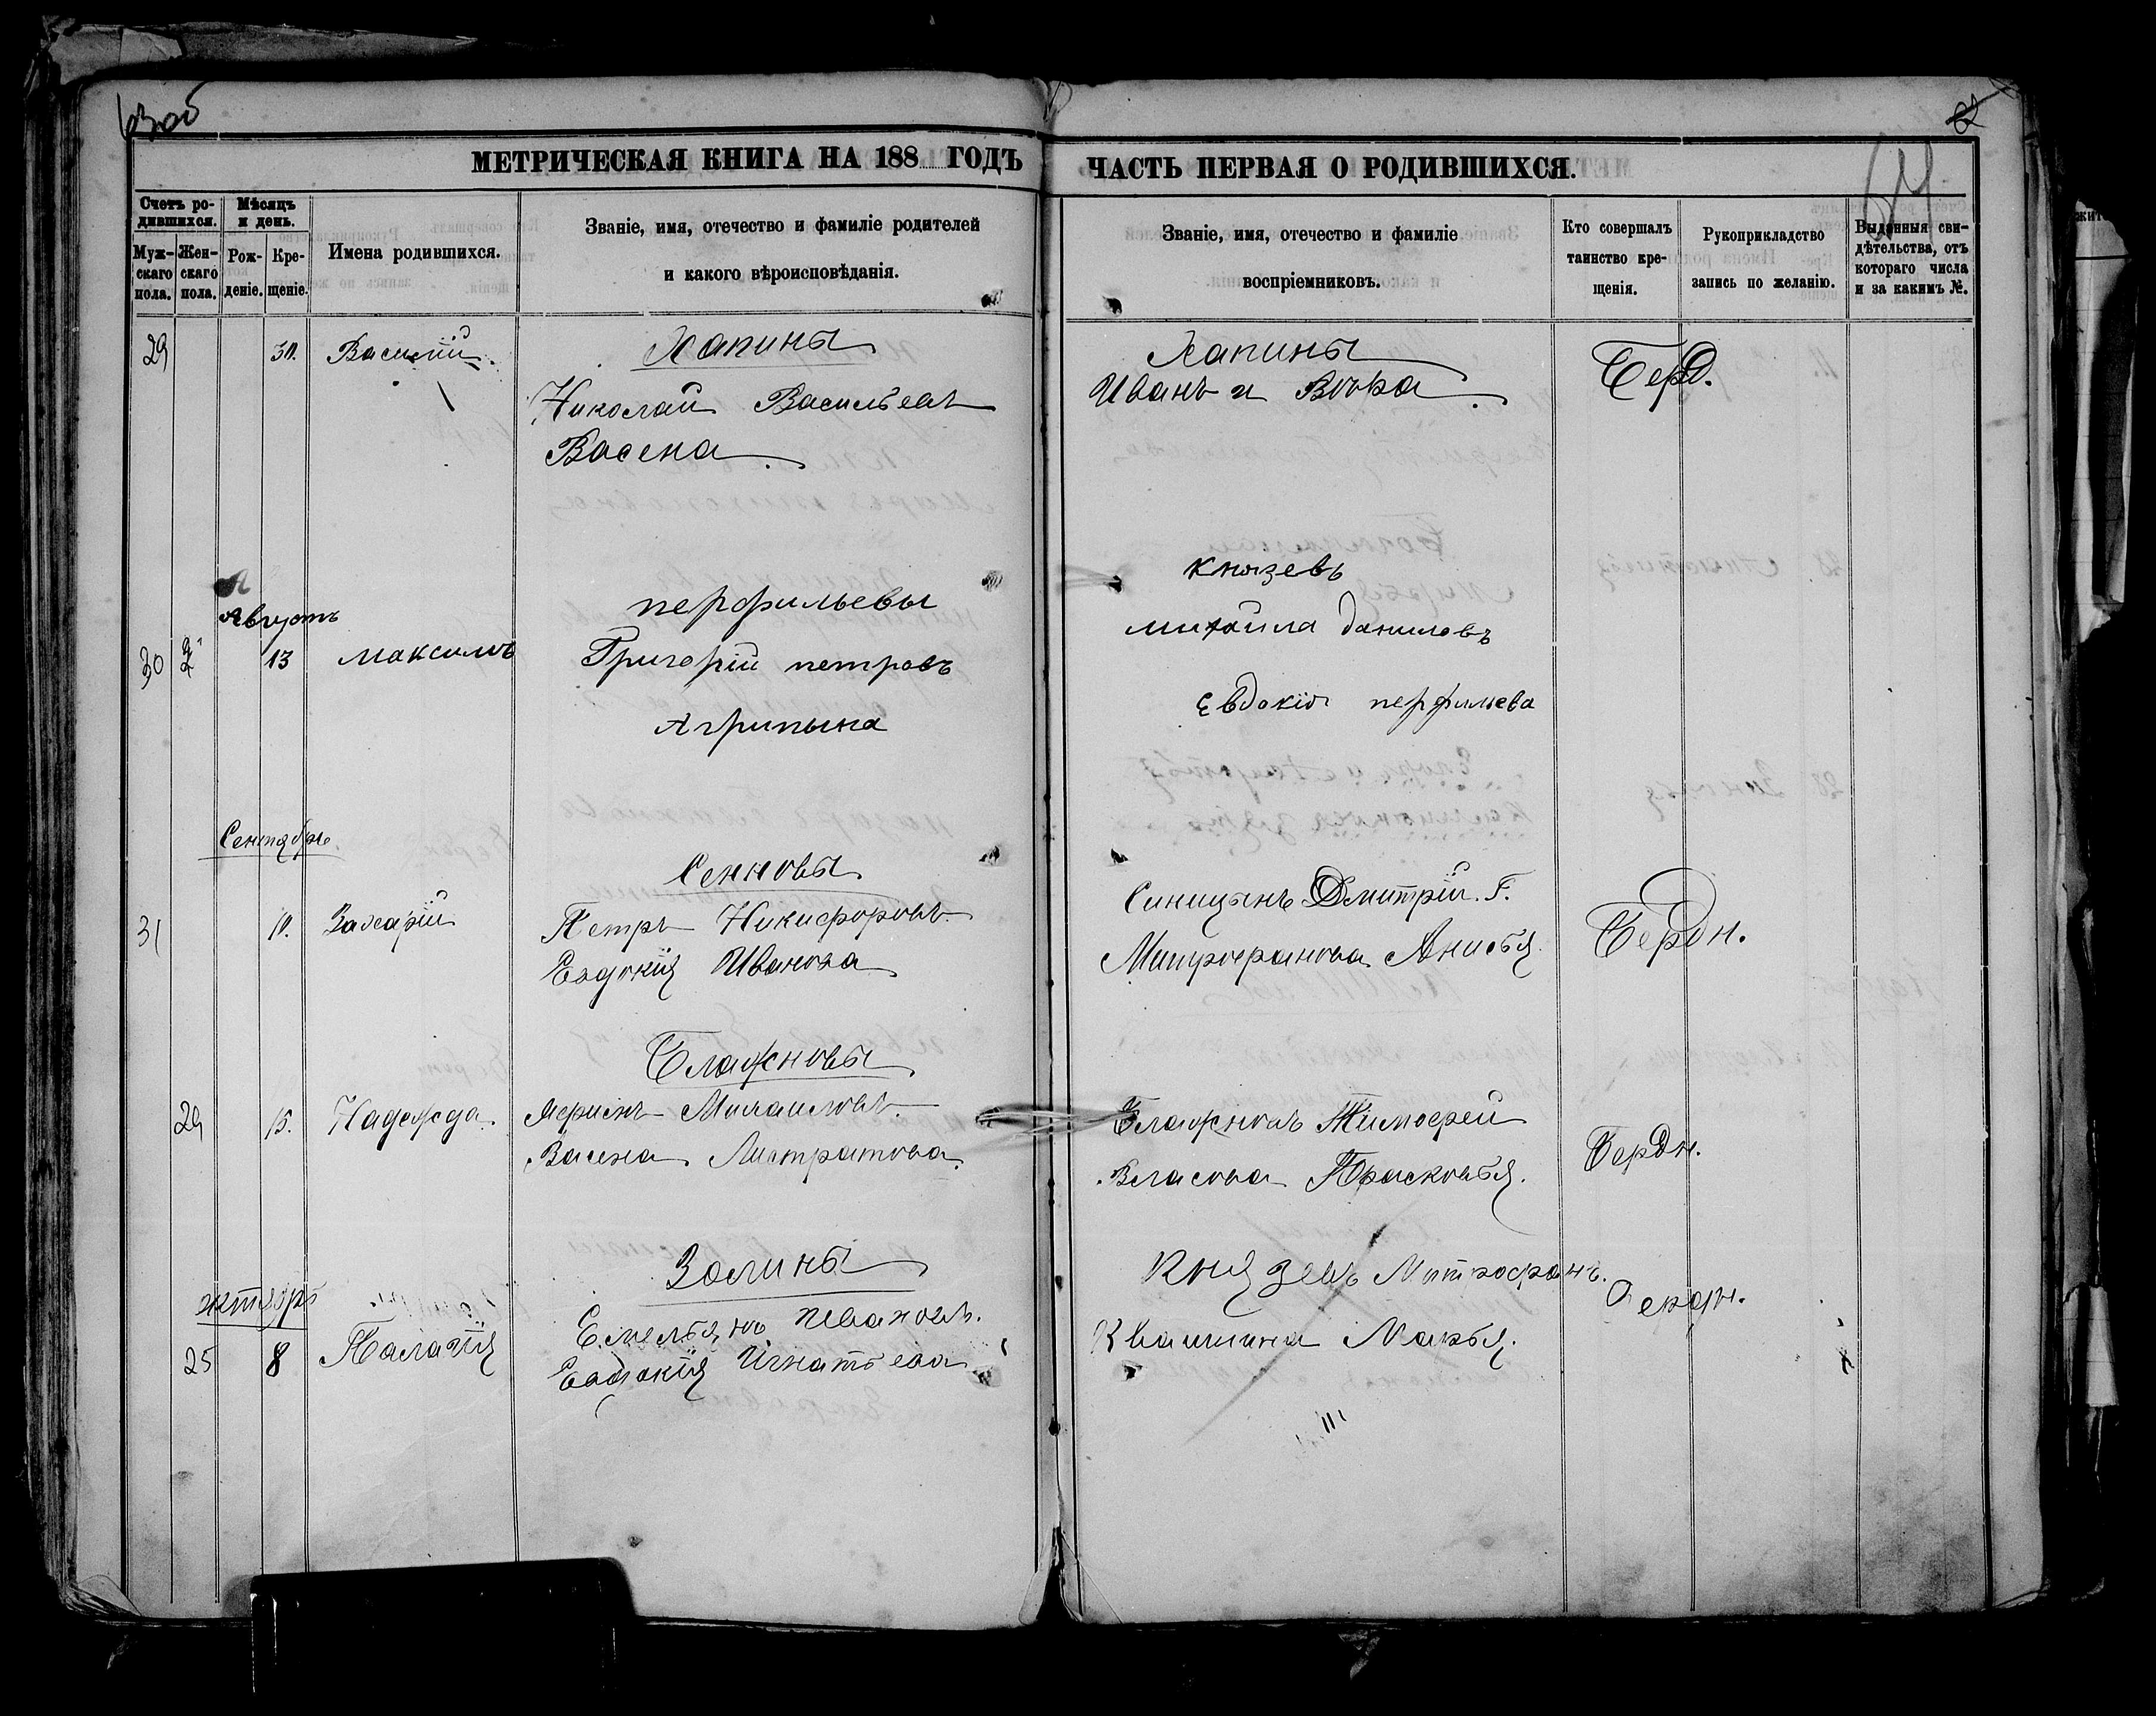 63об
МЕТРИЧЕСКАЯ КНИГА НА 188 ГОДЪ
ЧАСТЬ ПЕРВАЯ О РОДИВШИХСЯ.
64
Счетъ родившихся.
Мужскаго пола.
Женскаго пола.
Мѣсяцъ и день.
Рожденіе.
Крещеніе.
Имена родившихся.
Званіе, имя, отечество и фамиліе родителей
и какого вѣроисповѣданія.
Званіе, имя, отечество и фамиліе
воспріемниковъ.
Кто совершалъ
таинство крещенія.
Рукоприкладство
запись по желанію.
Выданныя свидѣтельства, отъ
котораго числа
и за какимъ №.
29 30. Василій.
Хапины
Николай Васильевъ
Васена.
Хапины
Иванъ и Вѣра.
Берд.
Августъ
30 13 максимъ
перфильевы
Григорій петровъ
Агрипына
князевъ
михаила даниловъ
Евдокія перфильева
Сентябрь.
31 10. Захарій
Сенновы
Петръ Никифоровъ
Евдокія Иванова
Синицынъ Дмитрій. Г.
Митрофанова Анисья.
Бердн.
29 15. Надежда.
Блажновы
Михаиловъ.
Васена Листратова.
Блажновъ Тимофей
Власова Прасковья.
Бердн.
октябрь
25 8 Палагія
Золины
Емельянъ Ивановъ.
Евдокія Игнатьева
Князевъ Митрофанъ.
Квашнина Марья.
Бердн.